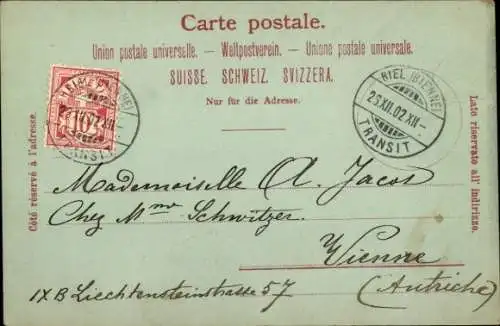 Carte postale.
Union postale universelle. — Weltpostverein. — Unione postale universale.
SUISSE. SCHWEIZ. SVIZZERA.
Nur für die Adresse.
Côté réservé à l'adresse.
Lato riservato all' indirizzo.
10
BIEL (BIENNE)
23.XII.02.XII-
TRANSIT
Mademoiselle A. Jacot
Chez Mme Schwitzer.
Vienne
(Autriche)
IX B Liechtensteinstrasse 57